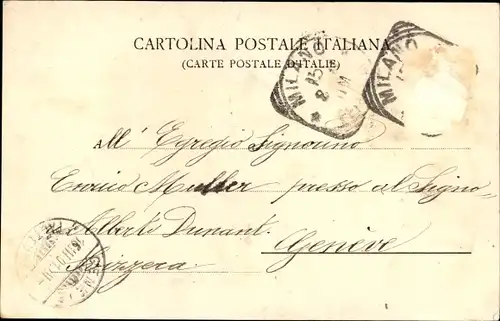 CARTOLINA POSTALE ITALIANA
(CARTE POSTALE D'ITALIE)
MILANO
15
MILANO
All' Egregio Signorino
Enrico Muller presso al Signo-
Alberti Dunant.
Genève
Svizzera